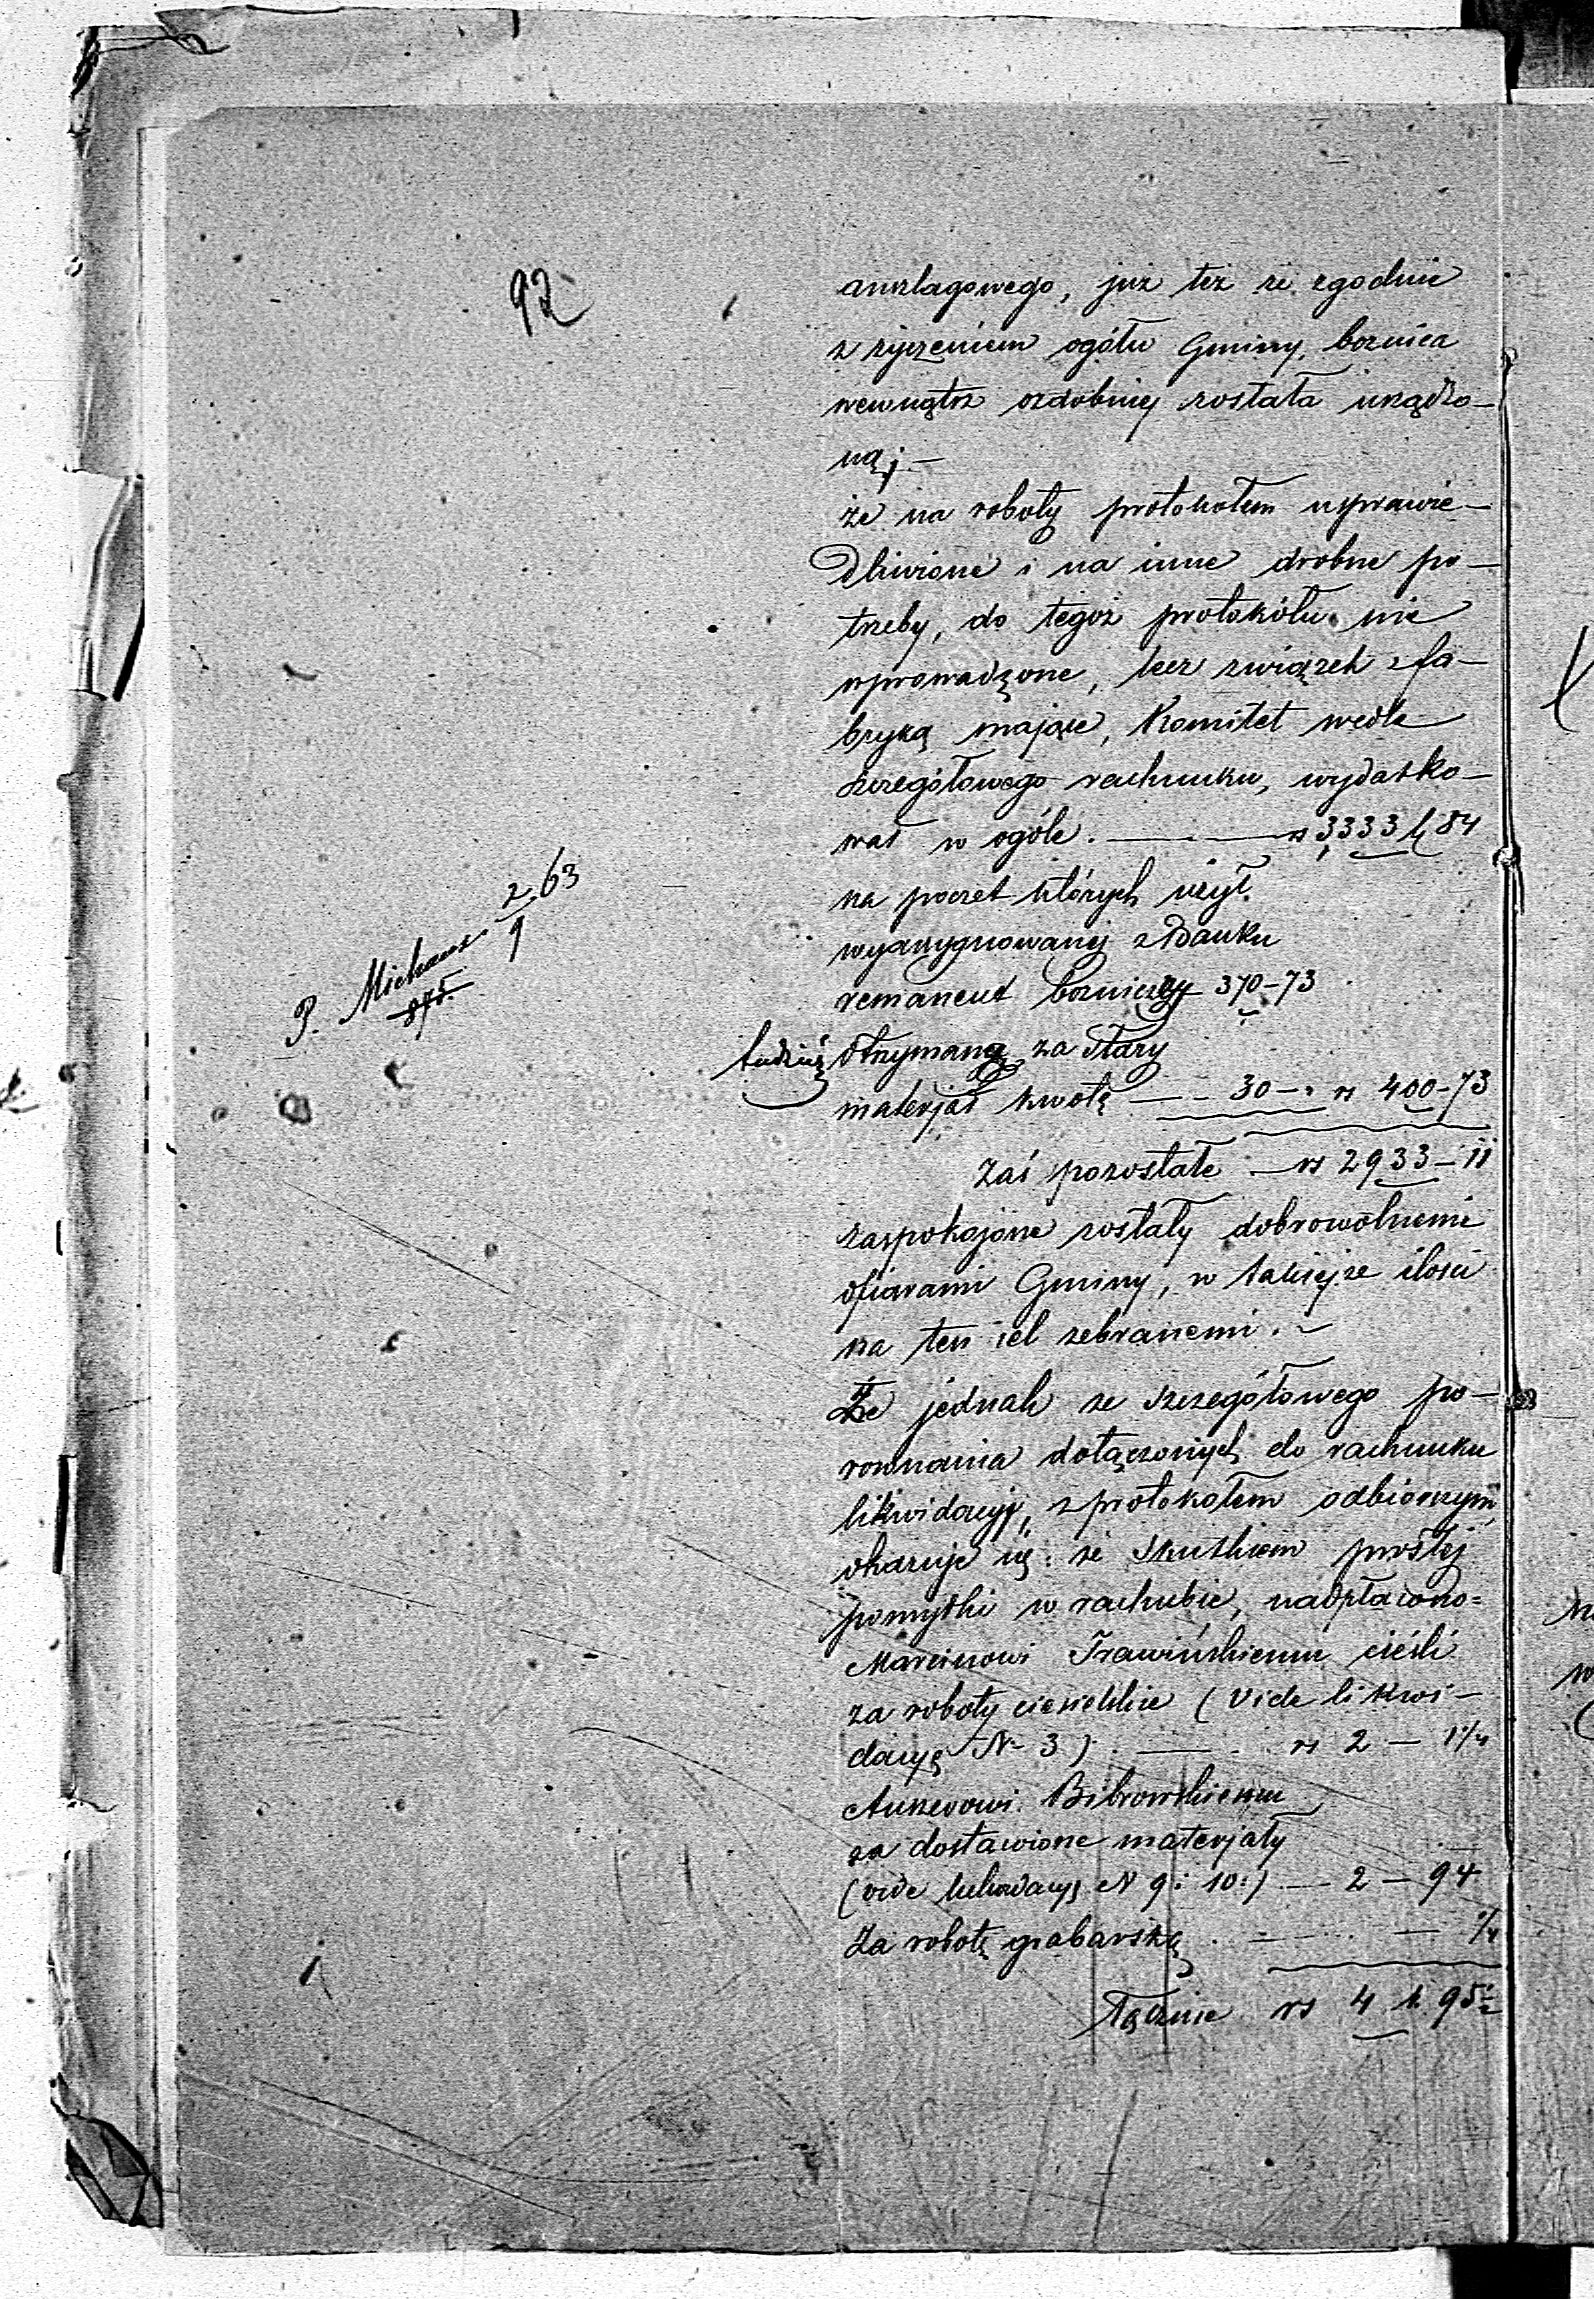 92
anszlagowego, już też że zgodnie
z życzeniem ogółu Gminy, boznica
wewnątrz ozdobniej została urządzo-
ną; —
że na roboty protokołem usprawie-
dliwione i na inne drobne po-
trzeby, do tegoż protokółu nie
wprowadzone, lecz związek z fa-
bryką mające, Komitet wedle
szczegółowego rachunku, wydatko-
wał w ogóle. — rs 3333 k 84
na poczet których użył.
wyassygnowanej z Banku
remanent bozniczy 370-73
tudzież otrzymaną za stary
materjał kwotę — 30 — rs 400-73
Zaś pozostałe — rs 2933-11
zaspokojone zostały dobrowolnemi
ofiarami Gminy, w takiejże ilości
na ten cel zebranemi. —
Że jednak ze szczegółowego po-
rownania dołączonych do rachunku
likwidacyj, z protokołem odbiorczym
okazuje się: że skutkiem prostej
pomyłki w rachubie, nadpłacono=
Marcinowi Trawińskiemu cieśli
za roboty ciesielskie (vide likwi-
dacyę N 3) . — rs 2 — 1 1/4
Ankerowi Bibrowskiemu
za dostawione materjały
(vide likwidacyę N 9 i 10:) — 2 — 94
Za robotę grabarską . — — 1/4
Łącznie rs 4 k 95 1/2
P. Michaux 2/9 63
875.